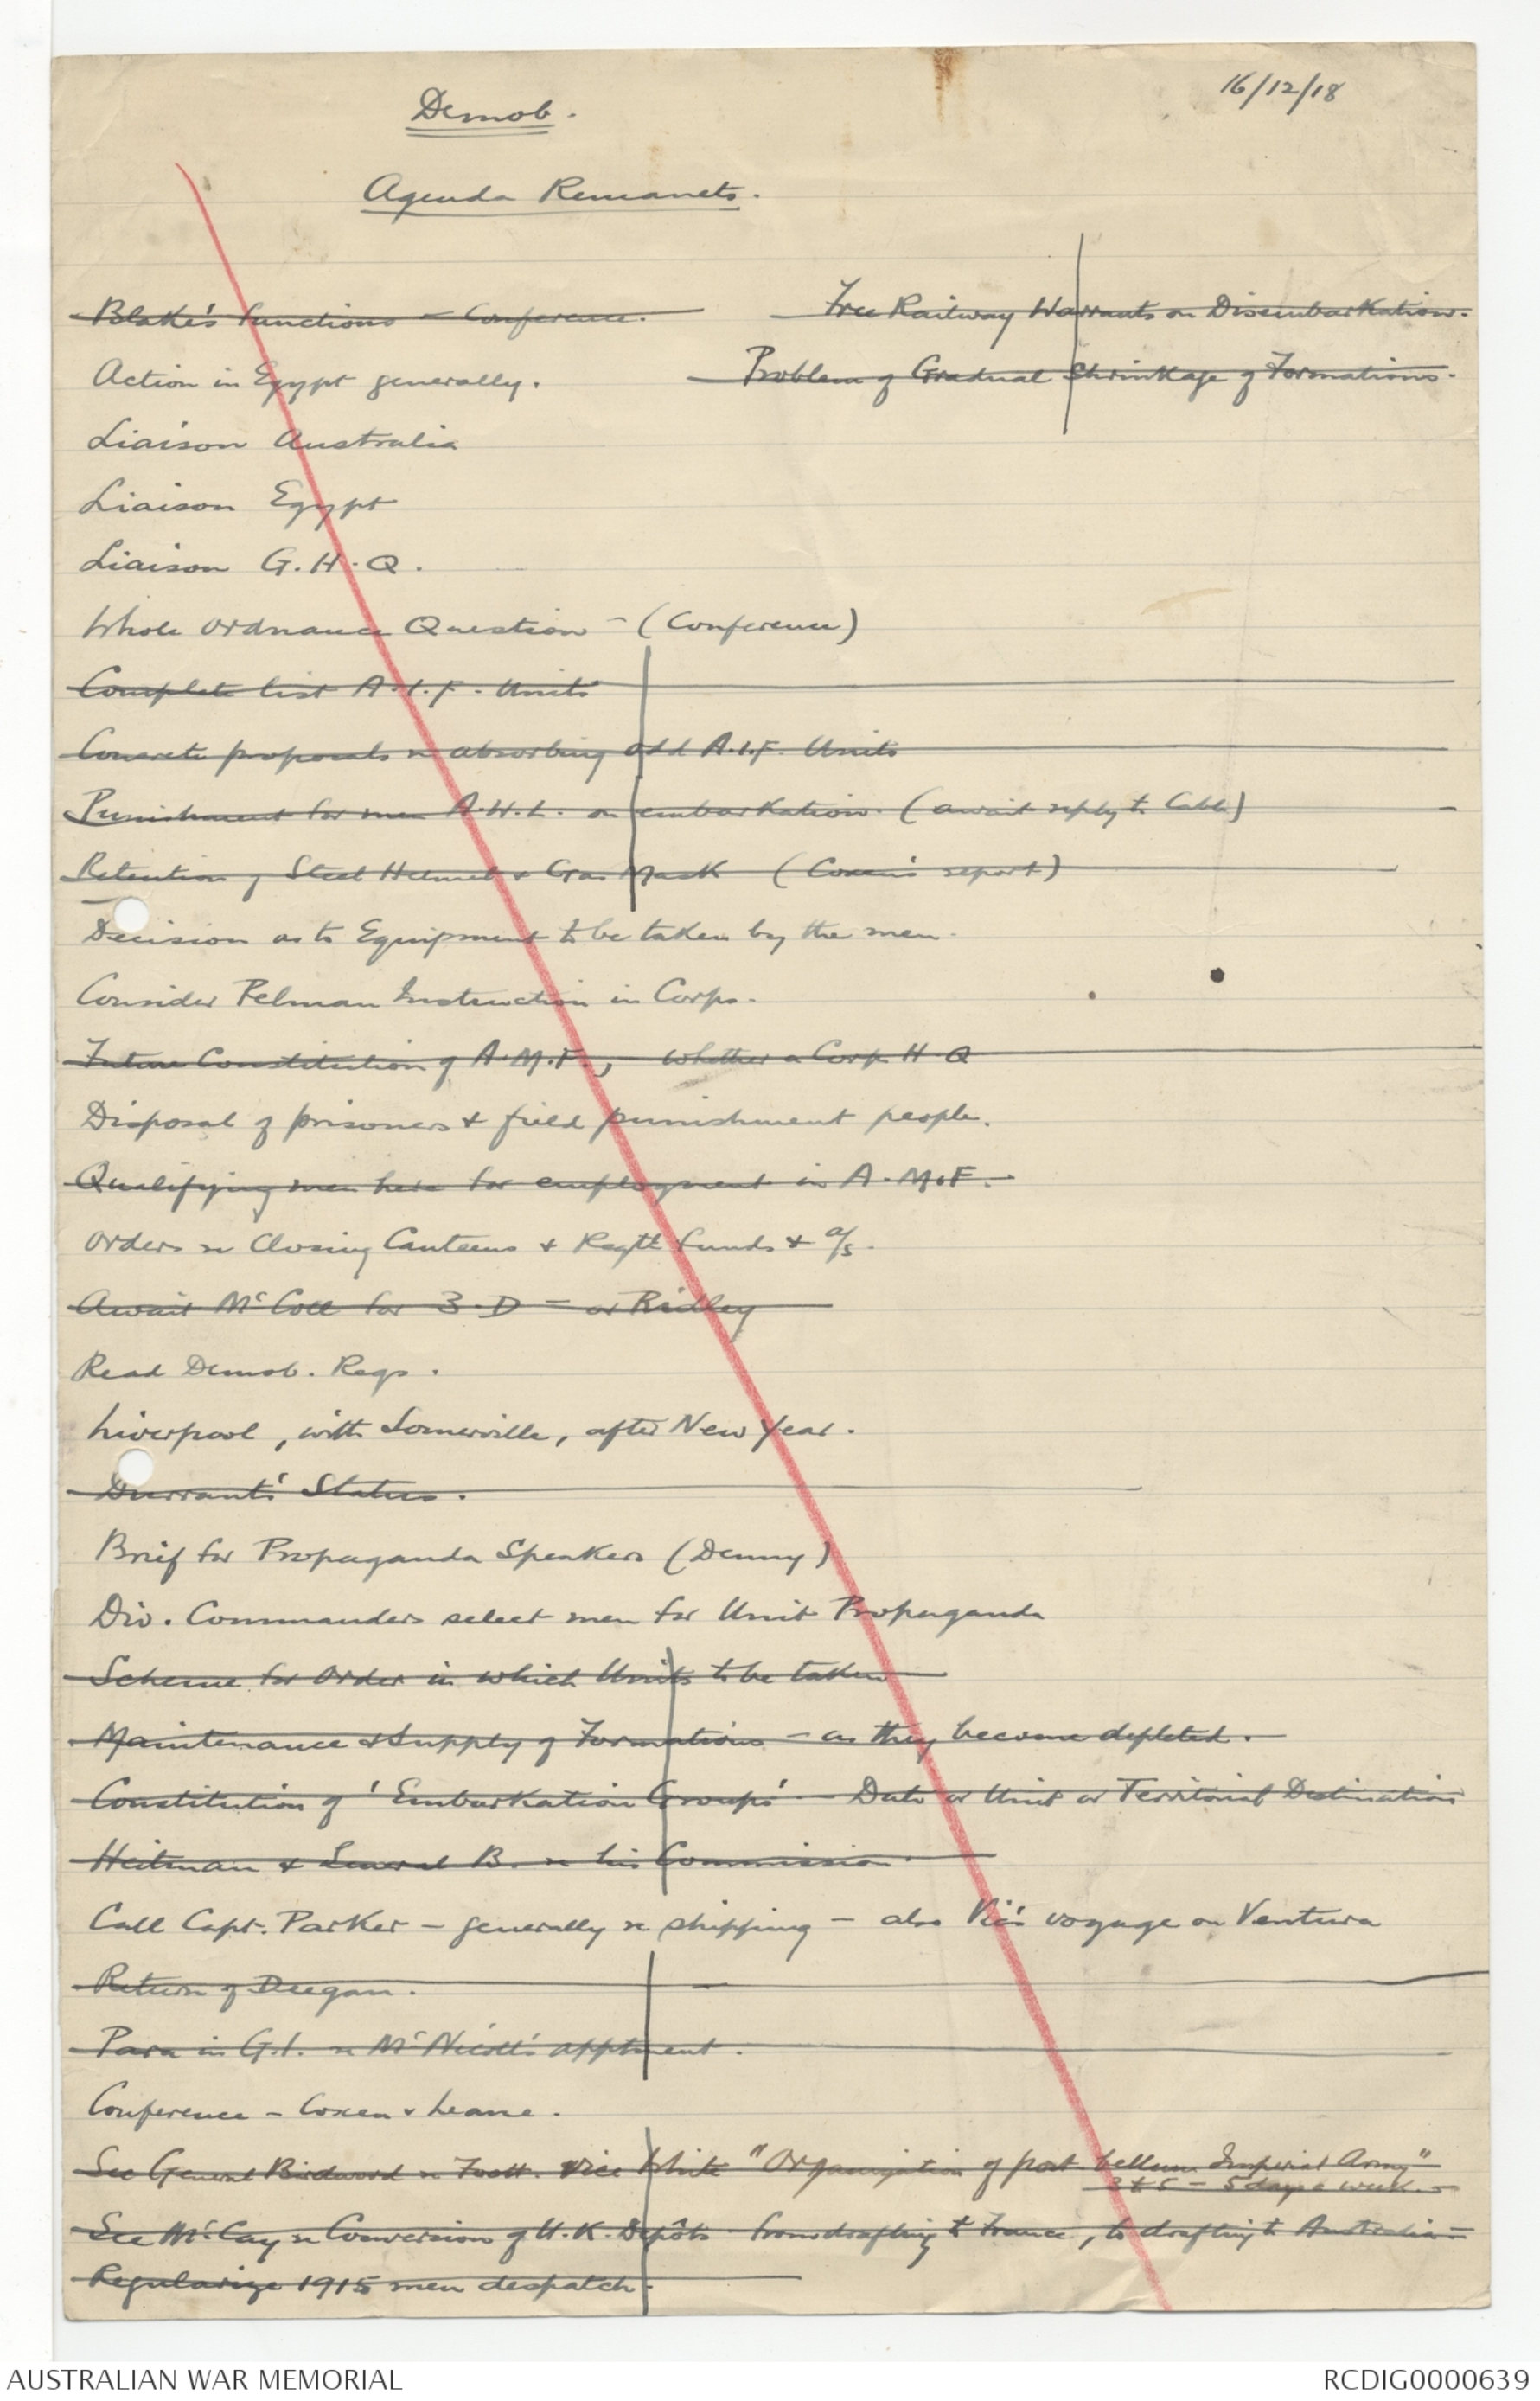 16/12/18
Demob.
Agenda Remanets.
Blake's functions - Conference.
Free Railway Warrants on Disembarkation.
Action in Egypt generally.
Problem of Gradual Shrinkage of Formations.
Liaison Australia
Liaison Egypt
Liaison G.H.Q.
Whole Ordnance Question - (Conference)
Complete list A.I.F. Units
Concrete proposals re absorbing odd A.I.F. Units
Punishment for men A.W.L. on embarkation. (await reply to Cable)
Retention of Steel Helmet & Gas Mask (Coxen's report)
Decision as to Equipment to be taken by the men.
Consider Pelman Instruction in Corps.
Future Constitution of A.M.F., whether a Corps H.Q
Disposal of prisoners & field punishment people.
Qualifying men here for employment in A.M.F.
Orders re Closing Canteens & Regtl funds & a/s.
Await McColl for 3.D - or Ridley
Read Demob. Regs.
Liverpool, with Somerville, after New Year.
Durrant's Status.
Brief for Propaganda Speakers (Denny)
Div. Commanders select men for Unit Propaganda
Scheme for Order in which Units to be taken
Maintenance & Supply of Formations - as they become depleted.
Constitution of 'Embarkation Groups' - Date or Unit or Territorial Destination
Heitman & General B. re his Commission.
Call Capt. Parker - generally re shipping - also Vic's voyage on Ventura
Return of Deegan.
Para in G.I. re McNicoll's apptment.
Conference - Coxen & Leane.
See General Birdwood re Foott. vice White "Organization of post bellum Imperial Army"
3 to 5 - 5 days a week.
See McCay re Conversion of U.K. Depôts from drafting to France, to drafting to Australia -
Regularize 1915 men despatch.
AUSTRALIAN WAR MEMORIAL
RCDIG0000639